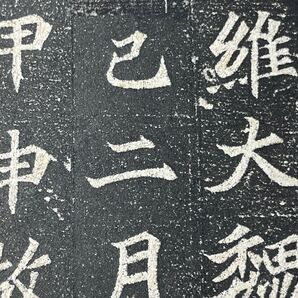 維大魏
己二月
甲申故